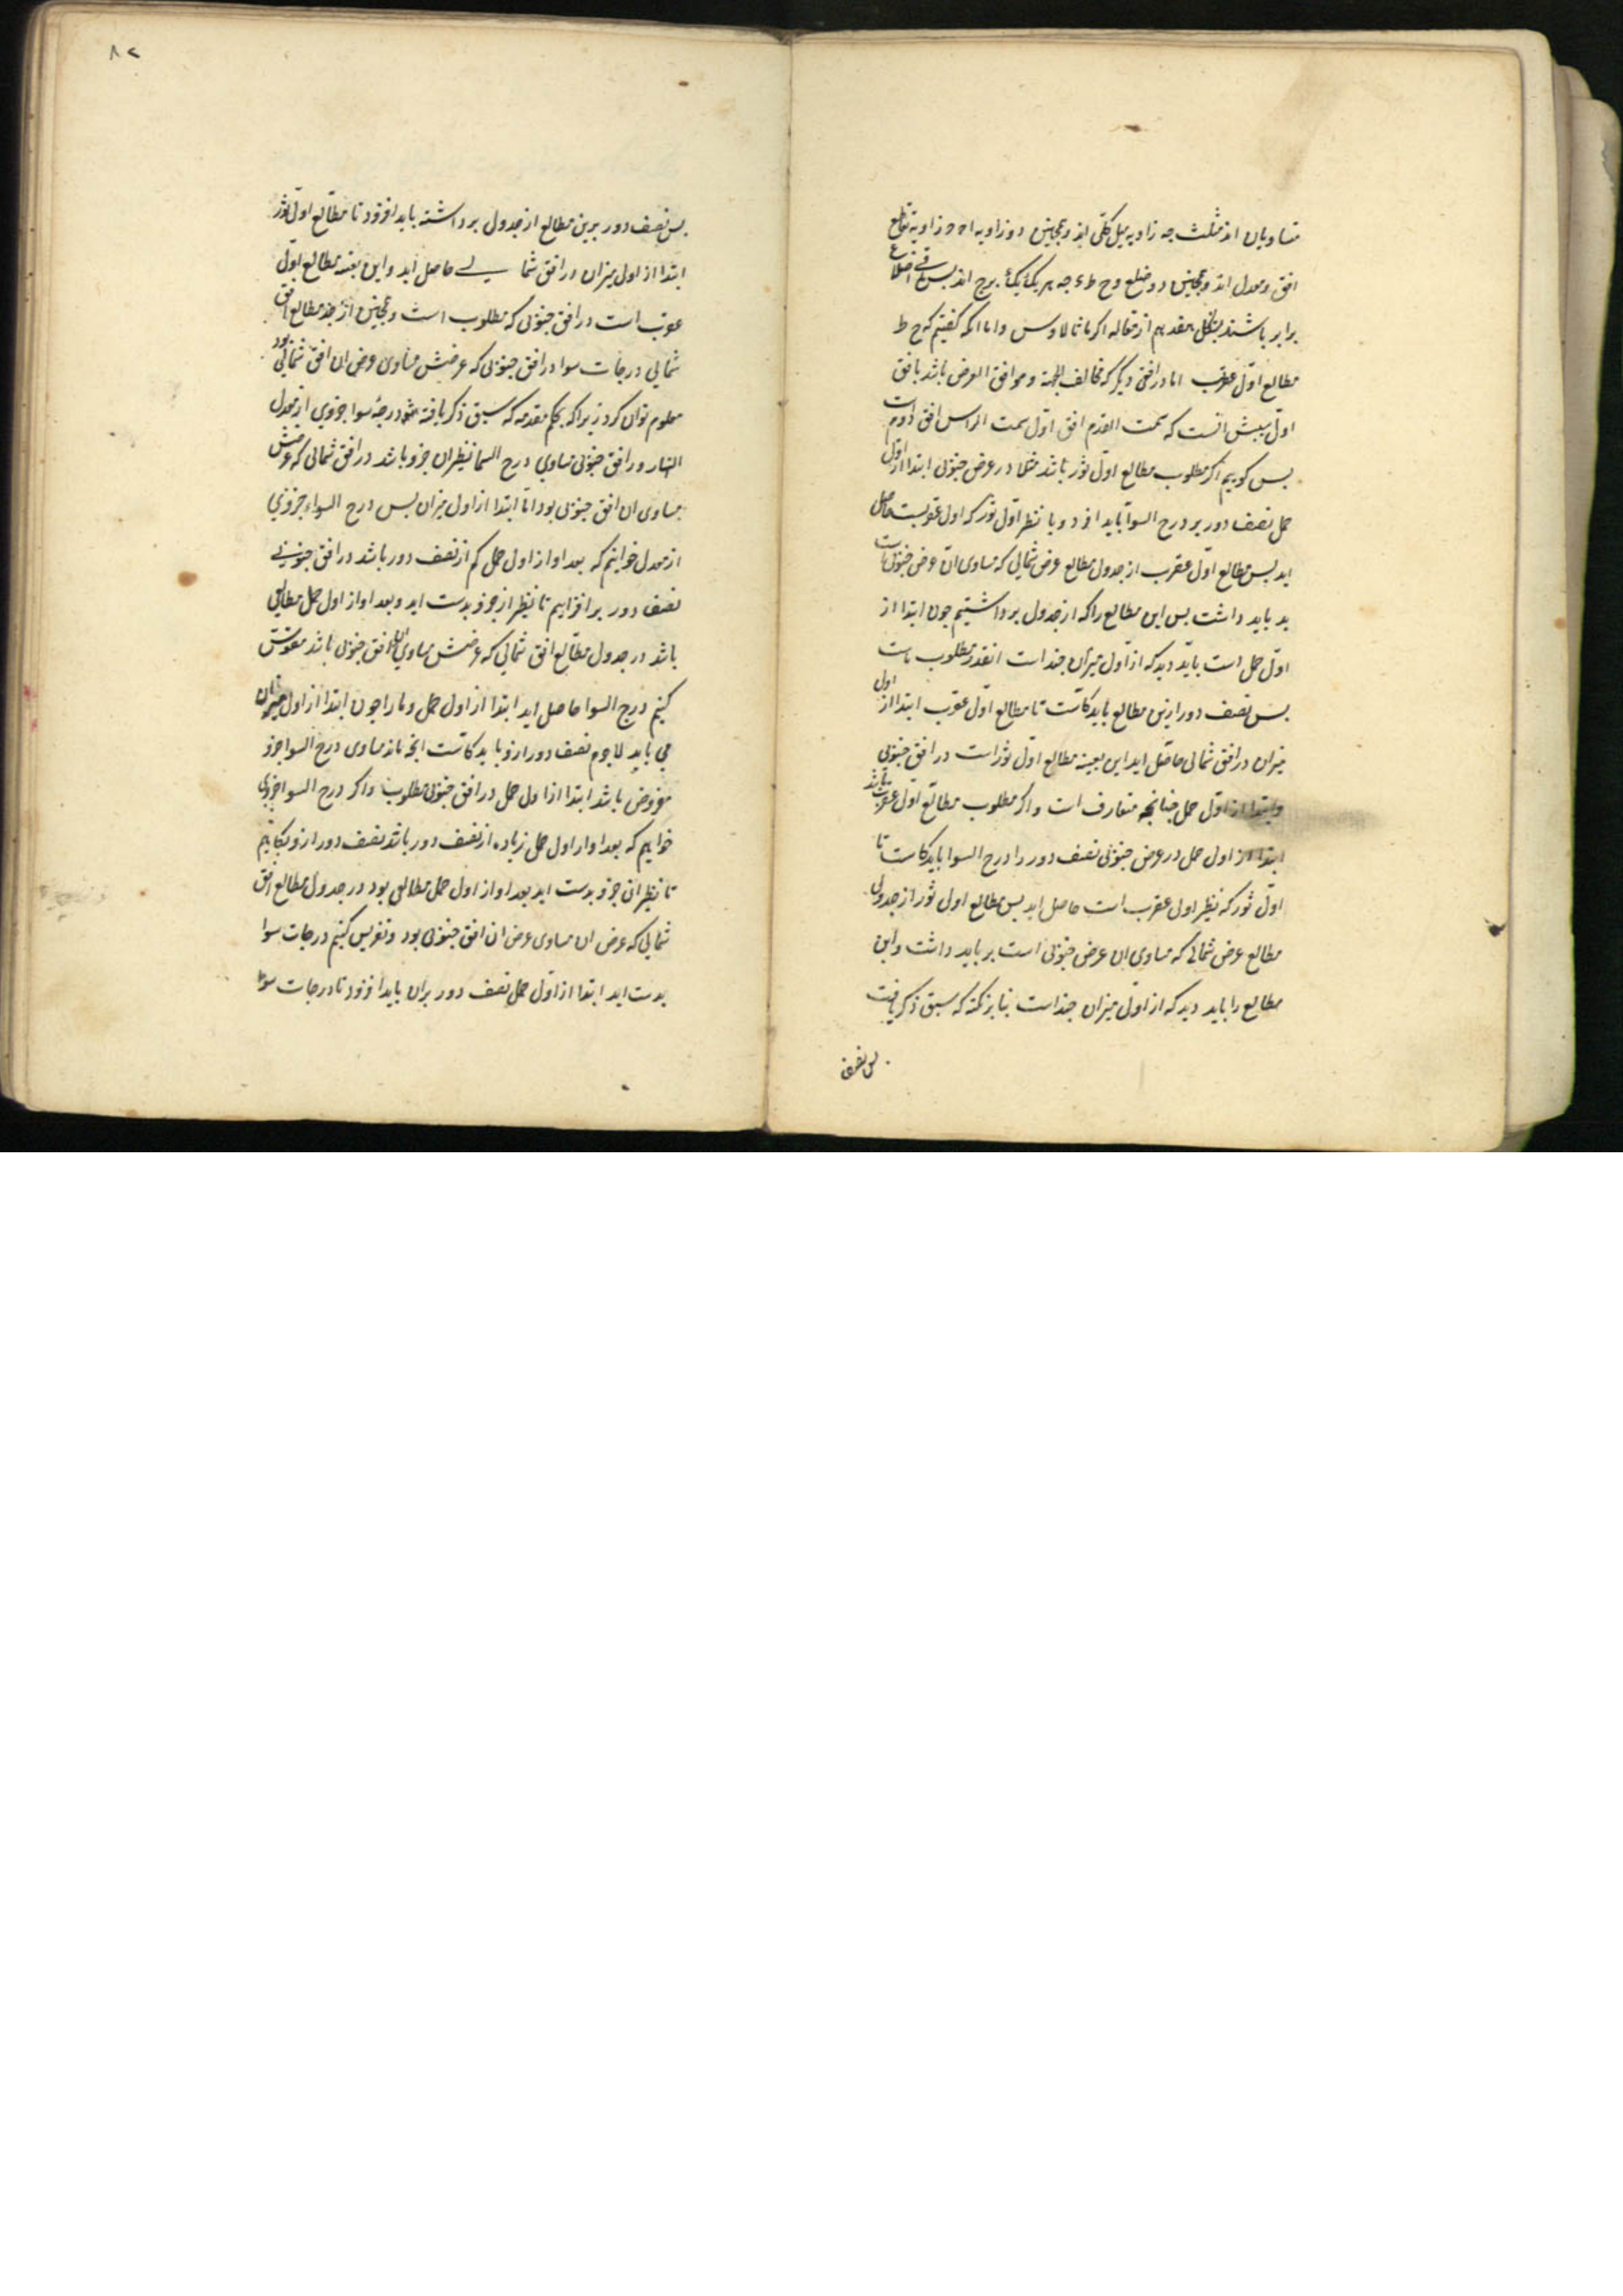 متساویان اند مثلث جه زاویه میل کلی اند و همچنین دو زاویه زاویه تقاطع
افق و معدل اند و همچنین دو ضلع وح ط جه هر یک یک برج اند پس باقی اضلاع
برابر باشند بشکل هفدهم از مقاله اکر مانالاوس و اما انکه کفتیم که ح ط
مطالع اول عقرب اما در افقی دیکر که مخالف الجهة و موافق العرض باشد با افق
اول سببش انست که سمت القدم افق اول سمت الراس افق دوم است
پس کوییم اکر مطلوب مطالع اول ثور باشد مثلا در عرض جنوبی ابتدا از اول
حمل نصف دور بر درج السوا باید افزود و یا نظیر اول ثور که اول عقربست حاصل
اید پس مطالع اول عقرب از جدول مطالع عرض شمالی که مساوی ان عرض جنوبی است
بد باید داشت پس این مطالع را که از جدول برداشتیم چون ابتدا از
اول حمل است باید دید که از اول میزان چند است انقدر مطلوب ماست
پس نصف دور ازین مطالع باید کاست تا مطالع اول عقرب ابتدا از اول
میزان در افق شمالی حاصل اید این بعینه مطالع اول ثور است در افق جنوبی
و ابتدا از اول حمل چنانچه متعارف است و اکر مطلوب مطالع اول عقرب باشد
ابتدا از اول حمل در عرض جنوبی نصف دور را درج السوا باید کاست تا
اول ثور که نظیر اول عقرب است حاصل اید پس مطالع اول ثور از جدول
مطالع عرض شمالی که مساوی ان عرض جنوبی است بر باید داشت و این
مطالع را باید دید که از اول میزان چند است بنا بر نکته که سبق ذکر یافت
پس نصف
۸۲
پس نصف دور برین مطالع از جدول برداشته باید افزود تا مطالع اول ثور
ابتدا از اول میزان در افق شمالی حاصل اید و این بعینه مطالع اول
عقرب است در افق جنوبی که مطلوب است و همچنین از جدول مطالع افق
شمالی درجات سوا در افق جنوبی که عرضش مساوی عرض ان افق شمالی بود
معلوم توان کرد زیرا که بحکم مقدمه که سبق ذکر یافته شود درجهٔ سوا جزوی از معدل
النهار در افق جنوبی مساوی درج السوا نظیر ان جزو باشد در افق شمالی که عرضش
مساوی ان افق جنوبی بود اما ابتدا از اول میزان پس درج السواء جزوی
از معدل خواهیم که بعد او از اول حمل کم از نصف دور باشد در افق جنوبی
نصف دور بر افزاییم تا نظیر از جزو بدست اید و بعد او از اول حمل مطالعی
باشد در جدول مطالع افق شمالی که عرضش مساوی ان افق جنوبی باشد مقوسش
کنیم درج السوا حاصل اید ابتدا از اول حمل و ما را چون ابتدا از اول میزان
می باید لاجرم نصف دور ازو باید کاست انچه ماند مساوی درج السوا جزو
مفروض باشد ابتدا از اول حمل در افق جنوبی مطلوب و اکر درج السوا جزوی
خواهیم که بعد او از اول حمل زیاده از نصف دور باشد نصف دور ازو بکاهیم
تا نظیر ان جزو بدست اید بعد او از اول حمل مطالعی بود در جدول مطالع افق
شمالی که عرض ان مساوی عرض ان افق جنوبی بود و تقویس کنیم درجات سوا
بدست اید ابتدا از اول حمل نصف دور بران باید افزود تا درجات سوا